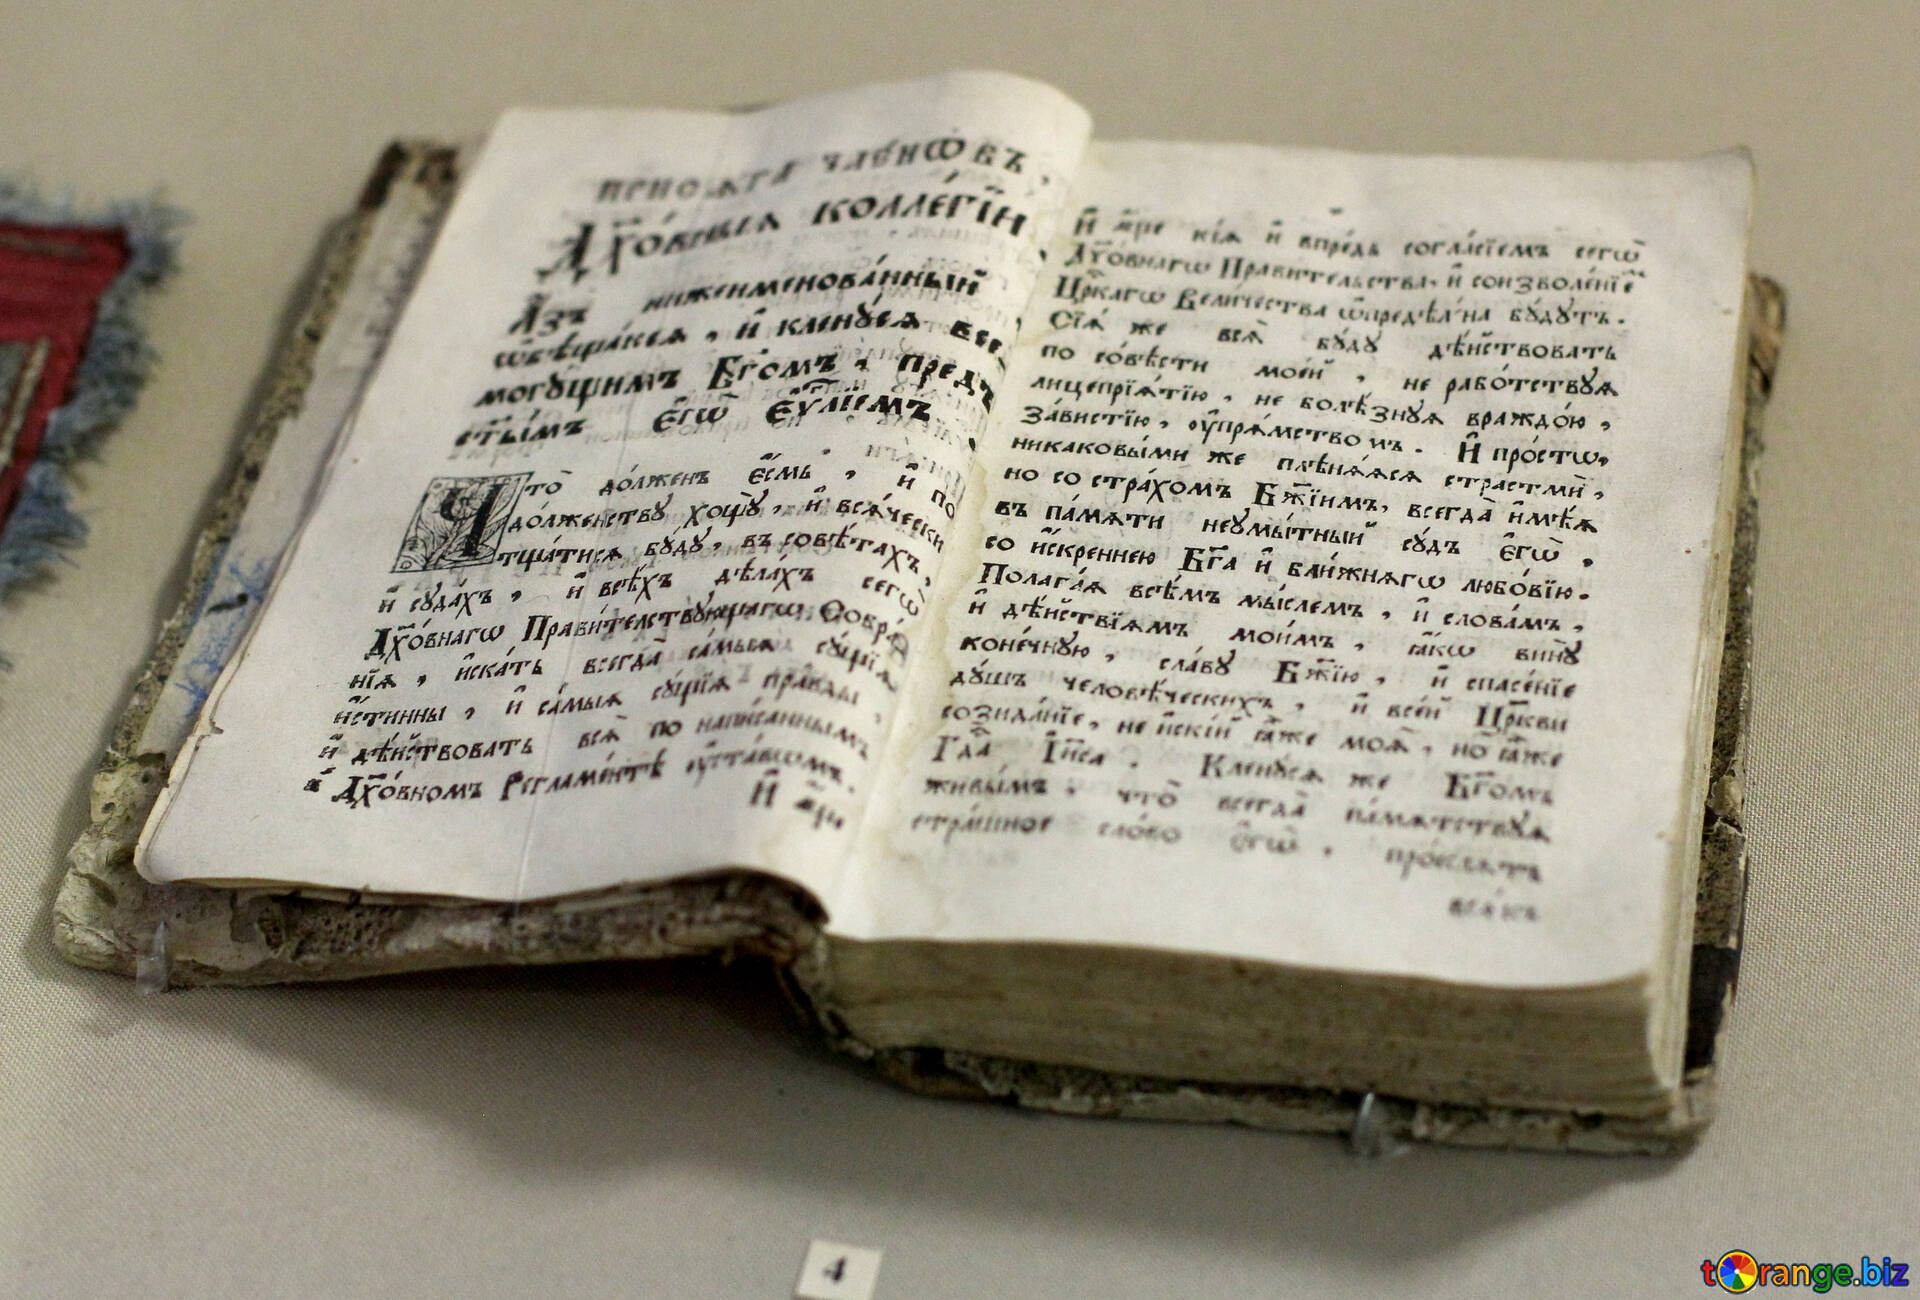 присѧга членѡвъ,
Дх҃о́вныѧ колле́гїи
А҆зъ нижеименова́нный
ѡ҆бѣща́юсѧ, и҆ клену́сѧ все
могу́щимъ Бг҃омъ, предъ
ст҃ы́мъ є҆гѡ̀ є҆ѵⷢ҇лїемъ
Что̀ до́лженъ є҆́смь, и҆ по
до́лженству хощꙋ̀, и҆ всѧ́чески
тща́тисѧ бꙋдꙋ, въ совѣ́тахъ,
и҆ сꙋда́хъ, и҆ всѣ́хъ дѣла́хъ сегѡ̀
Дх҃о́внагѡ Прави́телствꙋющагѡ Собра́
нїѧ, и҆ска́ть всегда̀ са́мыѧ сꙋ́щїѧ
и҆́стинны, и҆ са́мыѧ сꙋ́щїѧ пра́вды,
и҆ дѣ́йствовать всѧ̀ по напи́саннымъ
в̾ Дх҃о́вномъ Регламе́нтѣ ᲂу҆ста́вѡмъ.
И҆ а҆́ще
И҆ а҆́ще кі́ѧ и҆ впре́дь согла́сїемъ сегѡ̀
Дх҃о́внагѡ Прави́тельства, и҆ соизволе́нїе
Црⷭ҇кагѡ Вели́чества ѡ҆предѣле́на бꙋ́дꙋтъ.
Сїѧ̑ же всѧ̀ бꙋ́дꙋ дѣ́йствовать
по со́вѣсти мое́й, не рабо́тствꙋѧ
лицепрїѧ́тїю, не болѣ́знꙋѧ враждо́ю,
за́вистїю, ᲂу҆прѧ́мствомъ. И҆ про́стѡ,
никаковы́ми же плѣнѧ́ѧсѧ страстмѝ,
но со стра́хомъ Бж҃їимъ, всегда̀ и҆мѣ́ѧ
въ па́мѧти неꙋмы́тный сꙋ́дъ є҆гѡ̀,
со и҆́скреннею Бг҃а и҆ бли́жнѧгѡ любо́вїю.
Полага́ѧ всѣ́мъ мы́слемъ, и҆ слова́мъ,
и҆ дѣ́йствїѧмъ мои́мъ, ꙗ҆́кѡ винꙋ̀
коне́чнꙋю, сла́вꙋ Бж҃їю, и҆ спасе́нїе
дꙋ́шъ человѣ́ческихъ, и҆ все́й Црⷦ҇ви
созида́нїе, не и҆скі́й ꙗ҆̀же моѧ̀, но̀ ꙗ҆̀же
Гдⷭ҇а І҆и҃са. Клену́сѧ же Бг҃омъ
живы́мъ, что̀ всегда̀ па́мѧтствꙋѧ
стра́шное сло́во є҆гѡ̀, про́клѧтъ
всѧ́къ
4
torange.biz